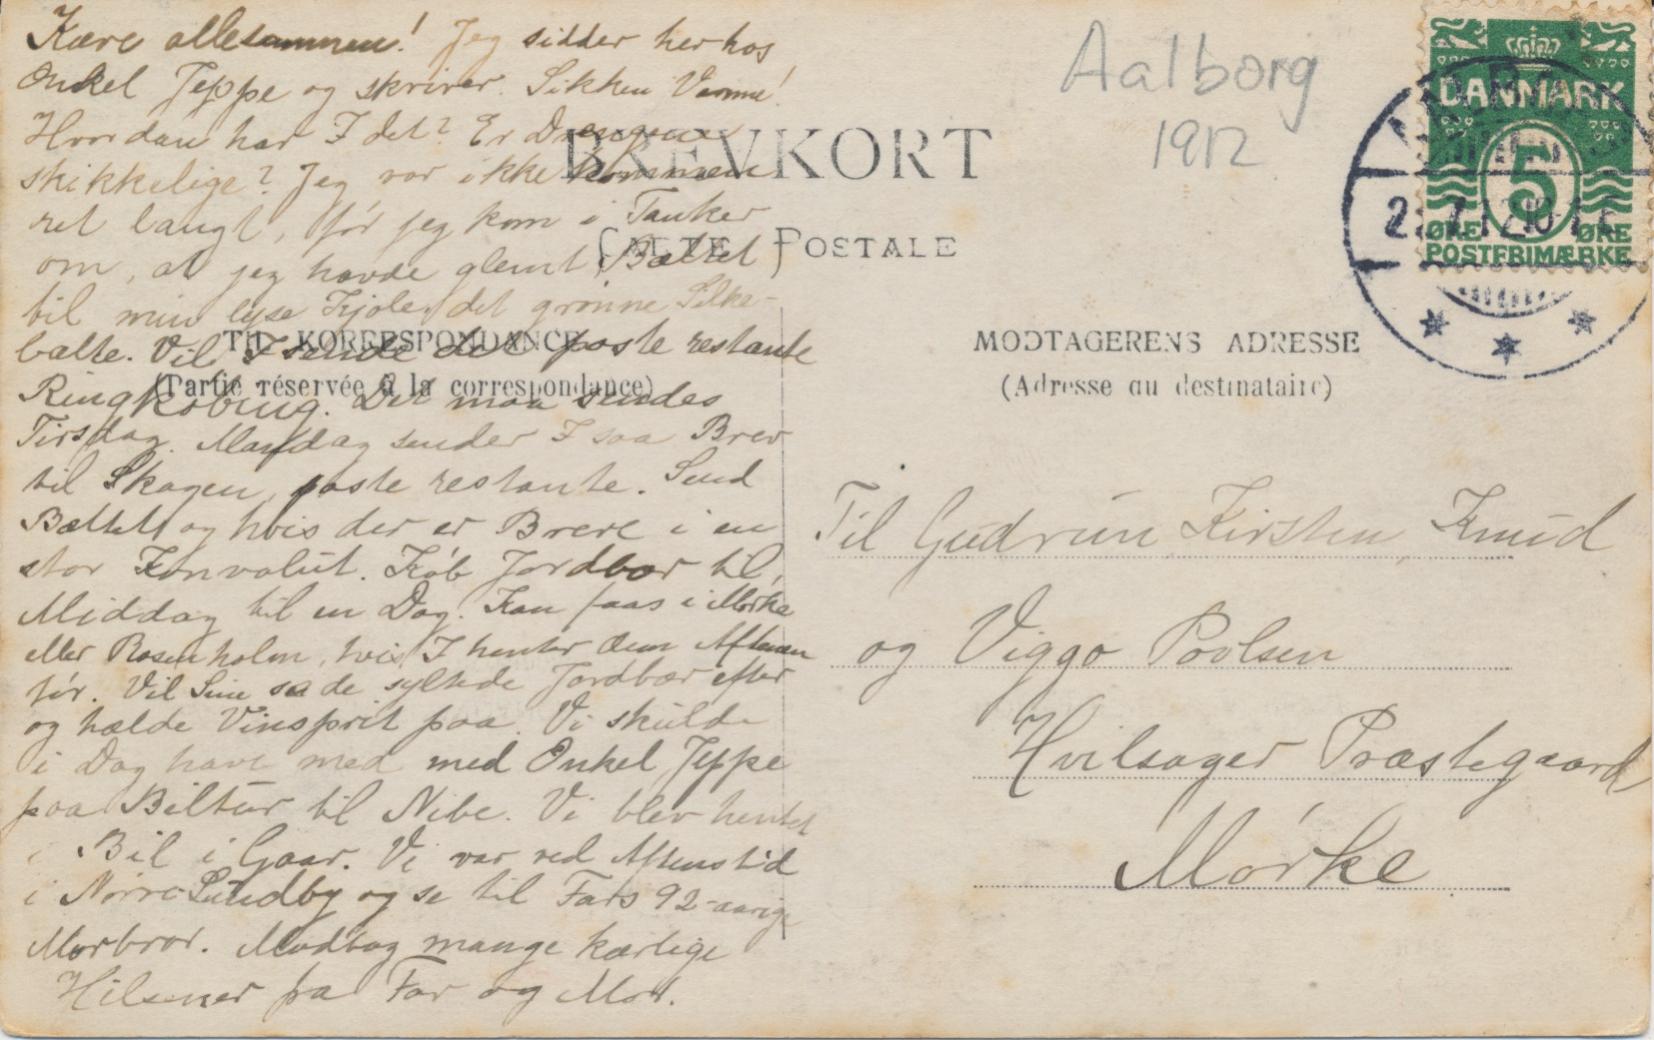 Kære allesammen! Jeg sidder her hos
Onkel Jeppe og skriver. Sikken Varme!
Hvordan har I det? Er Drengene
skikkelige? Jeg var ikke kommen
ret langt, før jeg kom i Tanker
om, at jeg havde glemt Bæltet
til min lyse Kjole, det grønne Silke-
bælte. Vil I sende det poste restante
Ringkøbing. Det maa sendes
Tirsdag. Mandag sender I saa Brev
til Skagen, poste restante. Send
Bæltet og hvis der er Breve i en
stor Konvolut. Køb Jordbær til
Middag til en Dag. Kan faas i Mørke
eller Rosenholm, hvis I henter dem Aftenen
før. Vil Sine se de syltede Jordbær efter
og hælde Vinsprit paa. Vi skulde
i Dag have med med Onkel Jeppe
paa Biltur til Nibe. Vi blev hentet
i Bil i Gaar. Vi var ved Aftenstid
i Nørre-Sundby og se til Fars 92-aarige
Morbror. Modtag mange kærlige
Hilsener fra Far og Mor.
Aalborg
1912
BREVKORT
CARTE POSTALE
TIL KORRESPONDANCE
(Partie réservée à la correspondance)
MODTAGERENS ADRESSE
(Adresse au destinataire)
DANMARK
5
ØRE ØRE
POSTFRIMÆRKE
Til Gudrun, Kirsten, Knud
og Viggo Povlsen
Hvilsager Præstegaard
Mørke